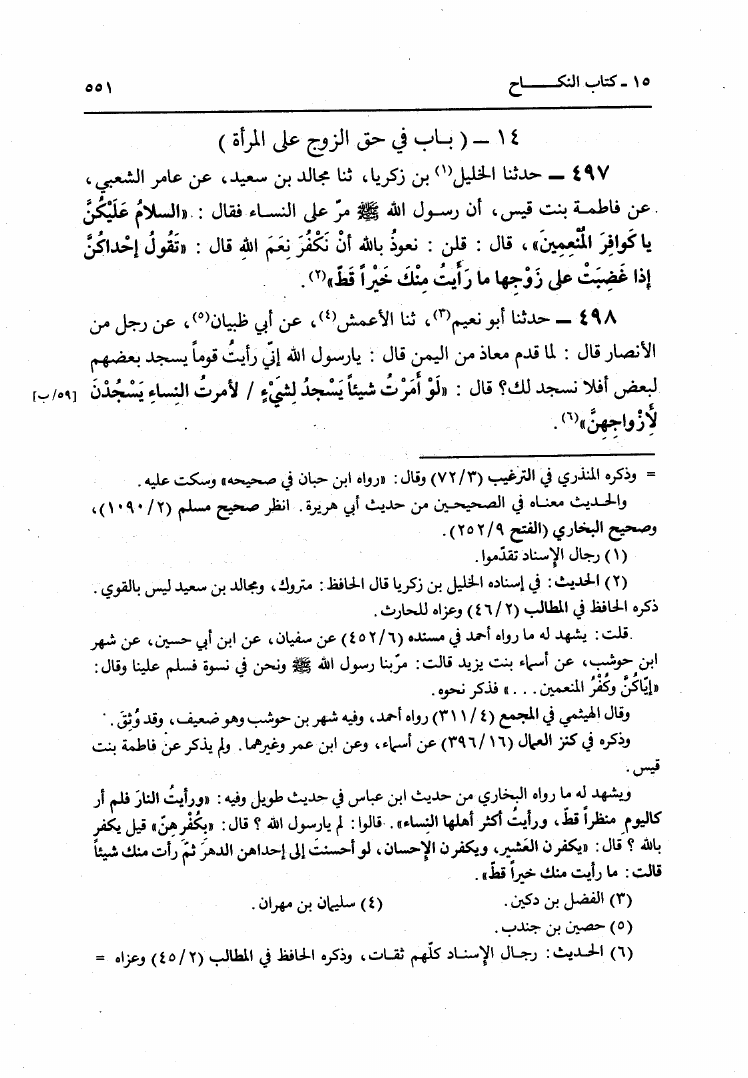 ١٥ ـ كتاب النكـــــاح ٥٥١
١٤ ــ ( بـاب في حق الزوج على المرأة )
٤٩٧ ــ حدثنا الخليل(١) بن زكريا، ثنا مجالد بن سعيد، عن عامر الشعبي،
عن فاطمـة بنت قيس، أن رسـول الله ﷺ مرّ على النسـاء فقال : «السلامُ عَلَيْكُنَّ
يا كَوافِرَ المُنْعِمِينَ»، قال : قلن : نعوذُ بالله أنْ نَكْفُرَ نِعَمَ اللهِ قال : «تَقُولُ إحْداكُنَّ
إذا غَضِبَتْ على زَوْجِها ما رَأَيتُ مِنْكَ خَيْراً قَطّ»(٢).
٤٩٨ ــ حدثنا أبو نعيم(٣)، ثنا الأعمش(٤)، عن أبي ظبيان(٥)، عن رجل من
الأنصار قال : لما قدم معاذ من اليمن قال : يارسول الله إنّي رأيتُ قوماً يسجد بعضهم
لبعض أفلا نسجد لك؟ قال : «لَوْ أَمَرْتُ شيئاً يَسْجدُ لِشَيْءٍ / لأمرتُ النِساءِ يَسْجُدْنَ [٥٩/ب]
لأَزْواجِهِنَّ»(٦).
= وذكره المنذري في الترغيب (٧٢/٣) وقال: «رواه ابن حبان في صحيحه» وسكت عليه.
والحـديث معنـاه في الصحيحـين من حديث أبي هريرة. انظر صحيح مسلم (١٠٩٠/٢)،
وصحيح البخاري (الفتح ٢٥٢/٩).
(١) رجال الإسناد تقدّموا.
(٢) الحديث: في إسناده الخليل بن زكريا قال الحافظ: متروك، ومجالد بن سعيد ليس بالقوي.
ذكره الحافظ في المطالب (٤٦/٢) وعزاه للحارث.
قلت: يشهد له ما رواه أحمد في مسنده (٤٥٢/٦) عن سفيان، عن ابن أبي حسين، عن شهر
ابن حوشب، عن أسماء بنت يزيد قالت: مرّ بنا رسول الله ﷺ ونحن في نسوة فسلم علينا وقال:
«إيّاكُنَّ وكُفْرُ المنعمين...» فذكر نحوه.
وقال الهيثمي في المجمع (٣١١/٤) رواه أحمد، وفيه شهر بن حوشب وهو ضعيف، وقد وُثِقَ.
وذكره في كنز العمال (٣٩٦/١٦) عن أسماء، وعن ابن عمر وغيرهما. ولم يذكر عن فاطمة بنت
قيس.
ويشهد له ما رواه البخاري من حديث ابن عباس في حديث طويل وفيه: «ورأيتُ النارَ فلم أر
كاليومِ منظراً قطّ، ورأيتُ أكثر أهلها النساء». قالوا: لم يارسول الله ؟ قال: «بِكُفْرِهِنّ» قيل يكفر
بالله ؟ قال: «يكفرن العَشير، ويكفرن الإحسان، لو أحسنتَ إلى إحداهن الدهرَ ثمّ رأت منك شيئاً
قالت: ما رأيت منك خيراً قطّ».
(٣) الفضل بن دكين. (٤) سليمان بن مهران.
(٥) حصين بن جندب.
(٦) الحـديث: رجـال الإسنـاد كلّهم ثقـات، وذكره الحافظ في المطالب (٤٥/٢) وعزاه =